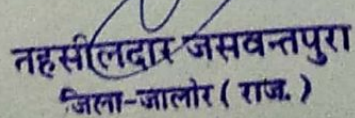 तहसीलदार जसवन्तपुरा
जिला-जालोर ( राज. )